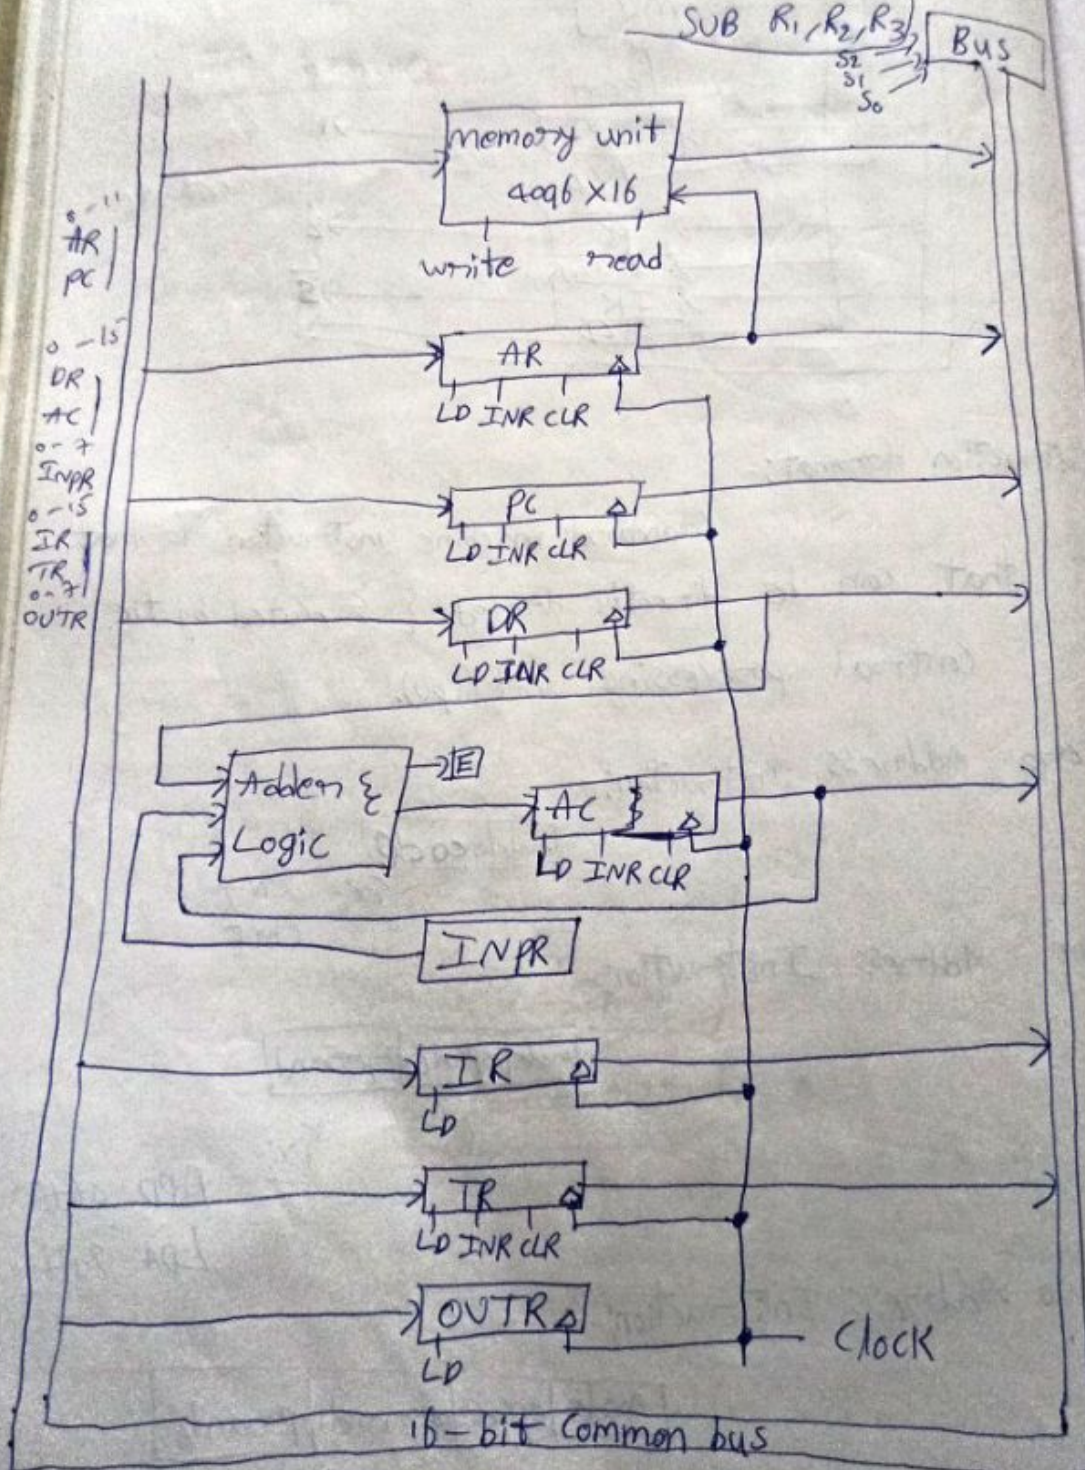 SUB R1, R2, R3
Bus
S2
S1
S0
Memory unit
4096 X 16
write read
0-11
AR
PC
0-15
DR
AC
0-7
INPR
0-15
IR
TR
0-7
OUTR
AR
LD INR CLR
PC
LD INR CLR
DR
LD INR CLR
Adder &
Logic
E
AC
LD INR CLR
INPR
IR
LD
TR
LD INR CLR
OUTR
LD
Clock
16-bit Common bus